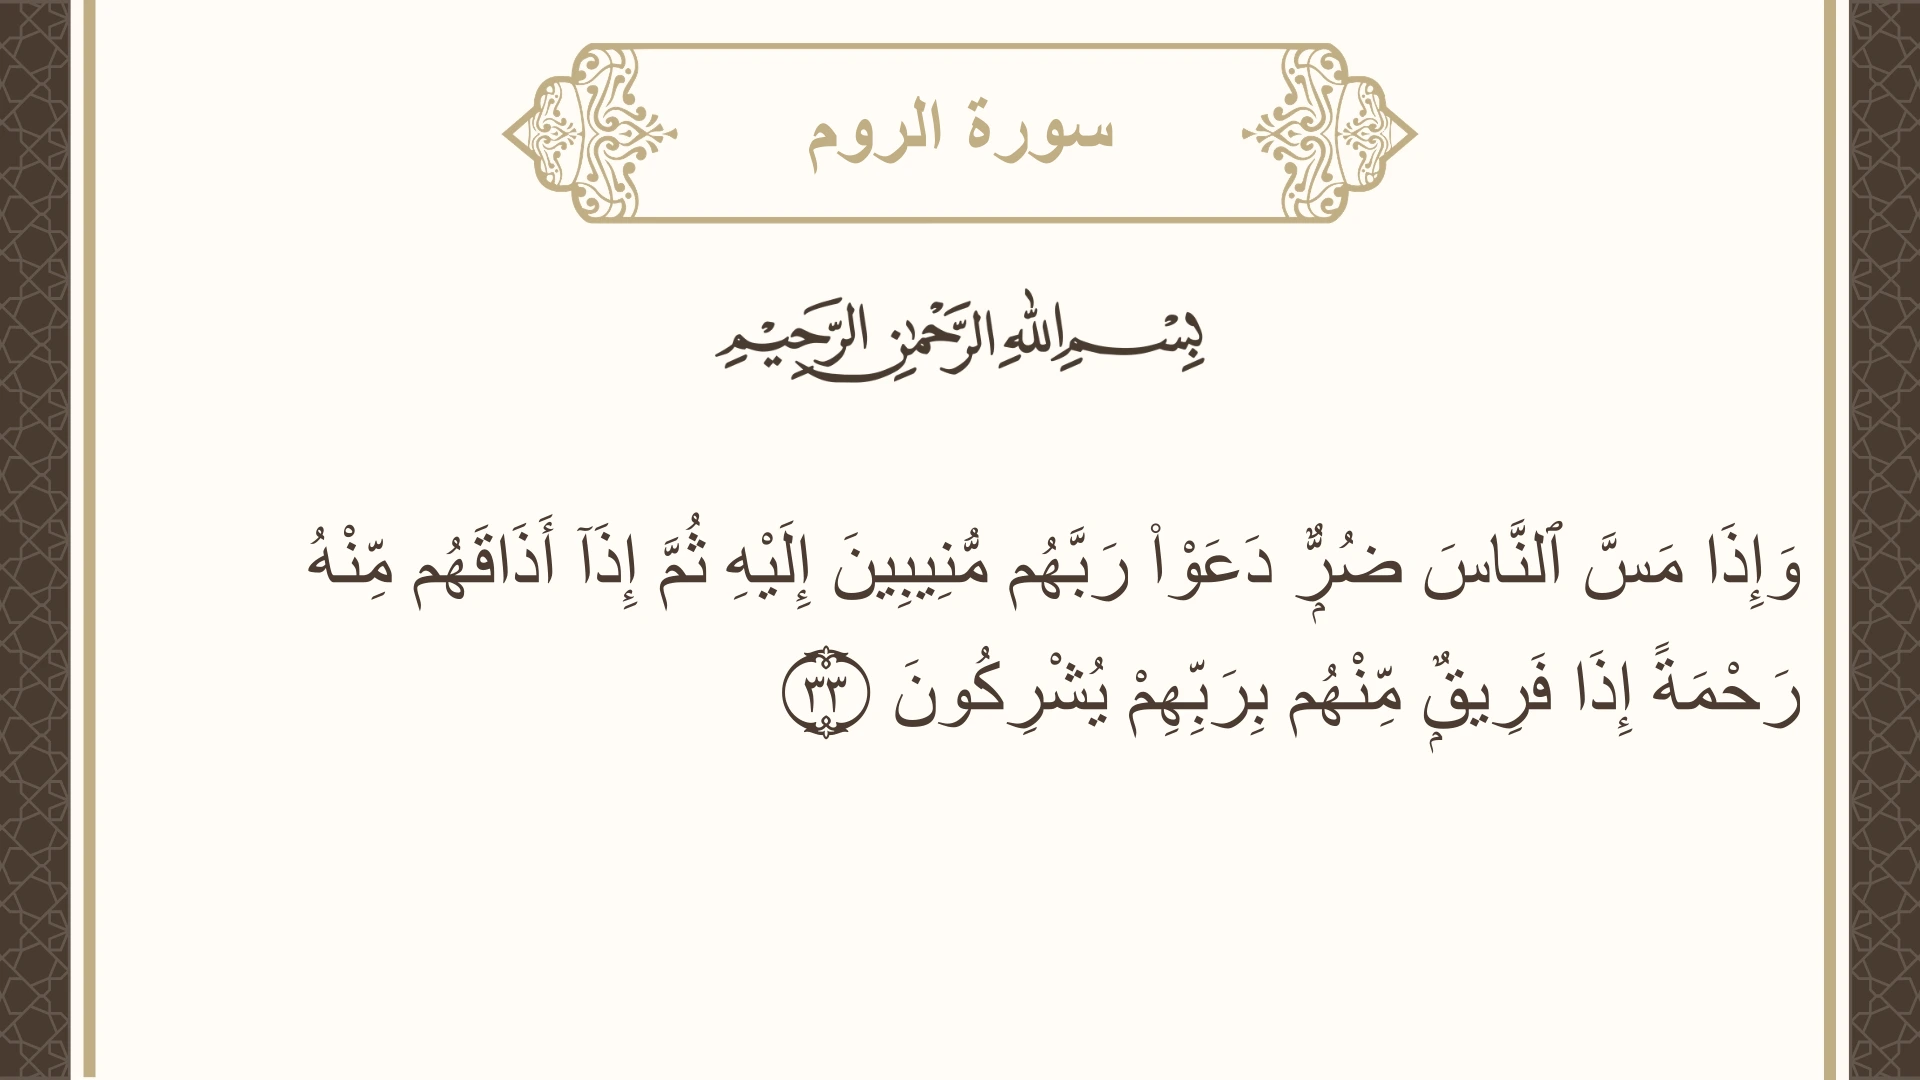 سورة الروم
بِسْمِ اللهِ الرَّحْمٰنِ الرَّحِيْمِ
وَإِذَا مَسَّ ٱلنَّاسَ ضُرٌّۭ دَعَوْا۟ رَبَّهُم مُّنِيبِينَ إِلَيْهِ ثُمَّ إِذَآ أَذَاقَهُم مِّنْهُ
رَحْمَةً إِذَا فَرِيقٌۭ مِّنْهُم بِرَبِّهِمْ يُشْرِكُونَ ٣٣